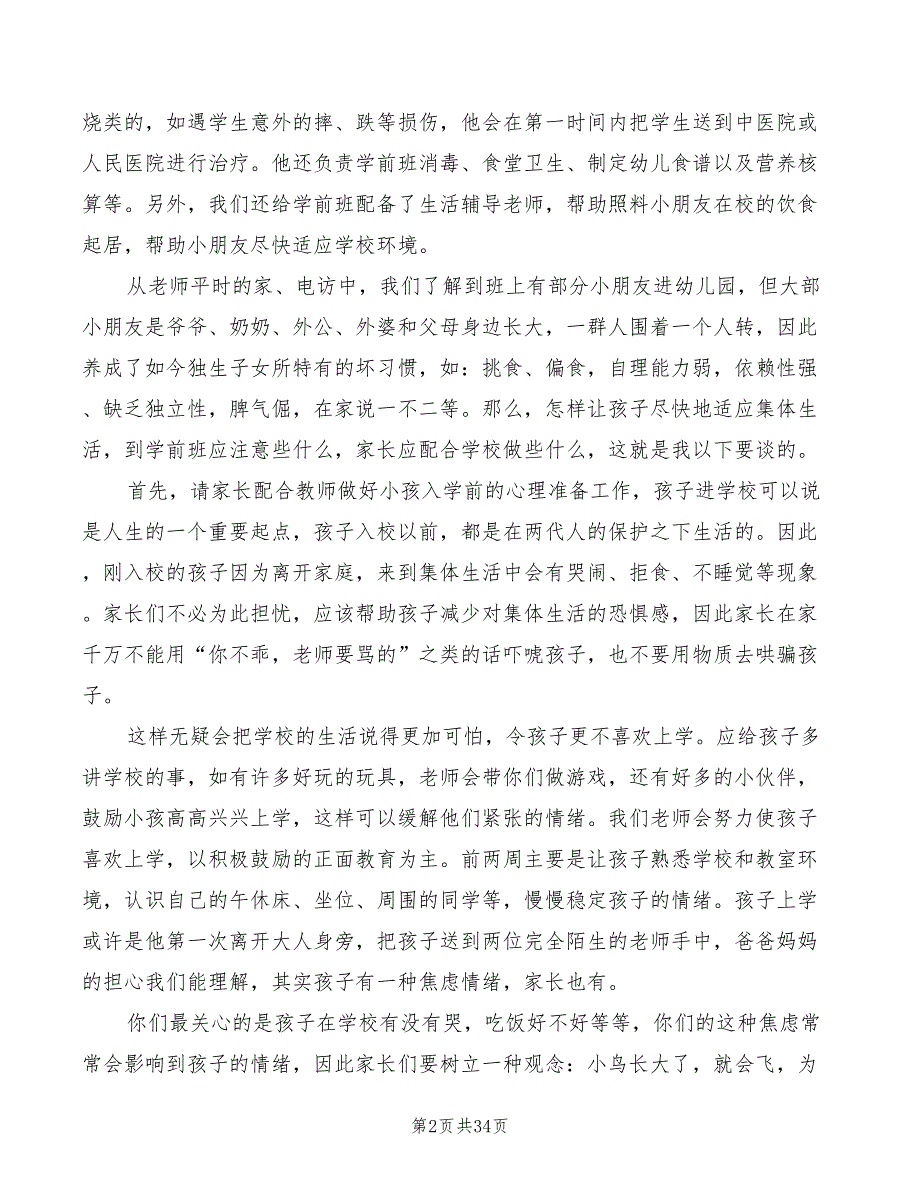 烧类的，如遇学生意外的摔、跌等损伤，他会在第一时间内把学生送到中医院或
人民医院进行治疗。他还负责学前班消毒、食堂卫生、制定幼儿食谱以及营养核
算等。另外，我们还给学前班配备了生活辅导老师，帮助照料小朋友在校的饮食
起居，帮助小朋友尽快适应学校环境。
从老师平时的家、电访中，我们了解到班上有部分小朋友进幼儿园，但大部
小朋友是爷爷、奶奶、外公、外婆和父母身边长大，一群人围着一个人转，因此
养成了如今独生子女所特有的坏习惯，如：挑食、偏食，自理能力弱，依赖性强
、缺乏独立性，脾气倔，在家说一不二等。那么，怎样让孩子尽快地适应集体生
活，到学前班应注意些什么，家长应配合学校做些什么，这就是我以下要谈的。
首先，请家长配合教师做好小孩入学前的心理准备工作，孩子进学校可以说
是人生的一个重要起点，孩子入校以前，都是在两代人的保护之下生活的。因此
，刚入校的孩子因为离开家庭，来到集体生活中会有哭闹、拒食、不睡觉等现象
。家长们不必为此担忧，应该帮助孩子减少对集体生活的恐惧感，因此家长在家
千万不能用“你不乖，老师要骂的”之类的话吓唬孩子，也不要用物质去哄骗孩
子。
这样无疑会把学校的生活说得更加可怕，令孩子更不喜欢上学。应给孩子多
讲学校的事，如有许多好玩的玩具，老师会带你们做游戏，还有好多的小伙伴，
鼓励小孩高高兴兴上学，这样可以缓解他们紧张的情绪。我们老师会努力使孩子
喜欢上学，以积极鼓励的正面教育为主。前两周主要是让孩子熟悉学校和教室环
境，认识自己的午休床、坐位、周围的同学等，慢慢稳定孩子的情绪。孩子上学
或许是他第一次离开大人身旁，把孩子送到两位完全陌生的老师手中，爸爸妈妈
的担心我们能理解，其实孩子有一种焦虑情绪，家长也有。
你们最关心的是孩子在学校有没有哭，吃饭好不好等等，你们的这种焦虑常
常会影响到孩子的情绪，因此家长们要树立一种观念：小鸟长大了，就会飞，为
第2页共34页